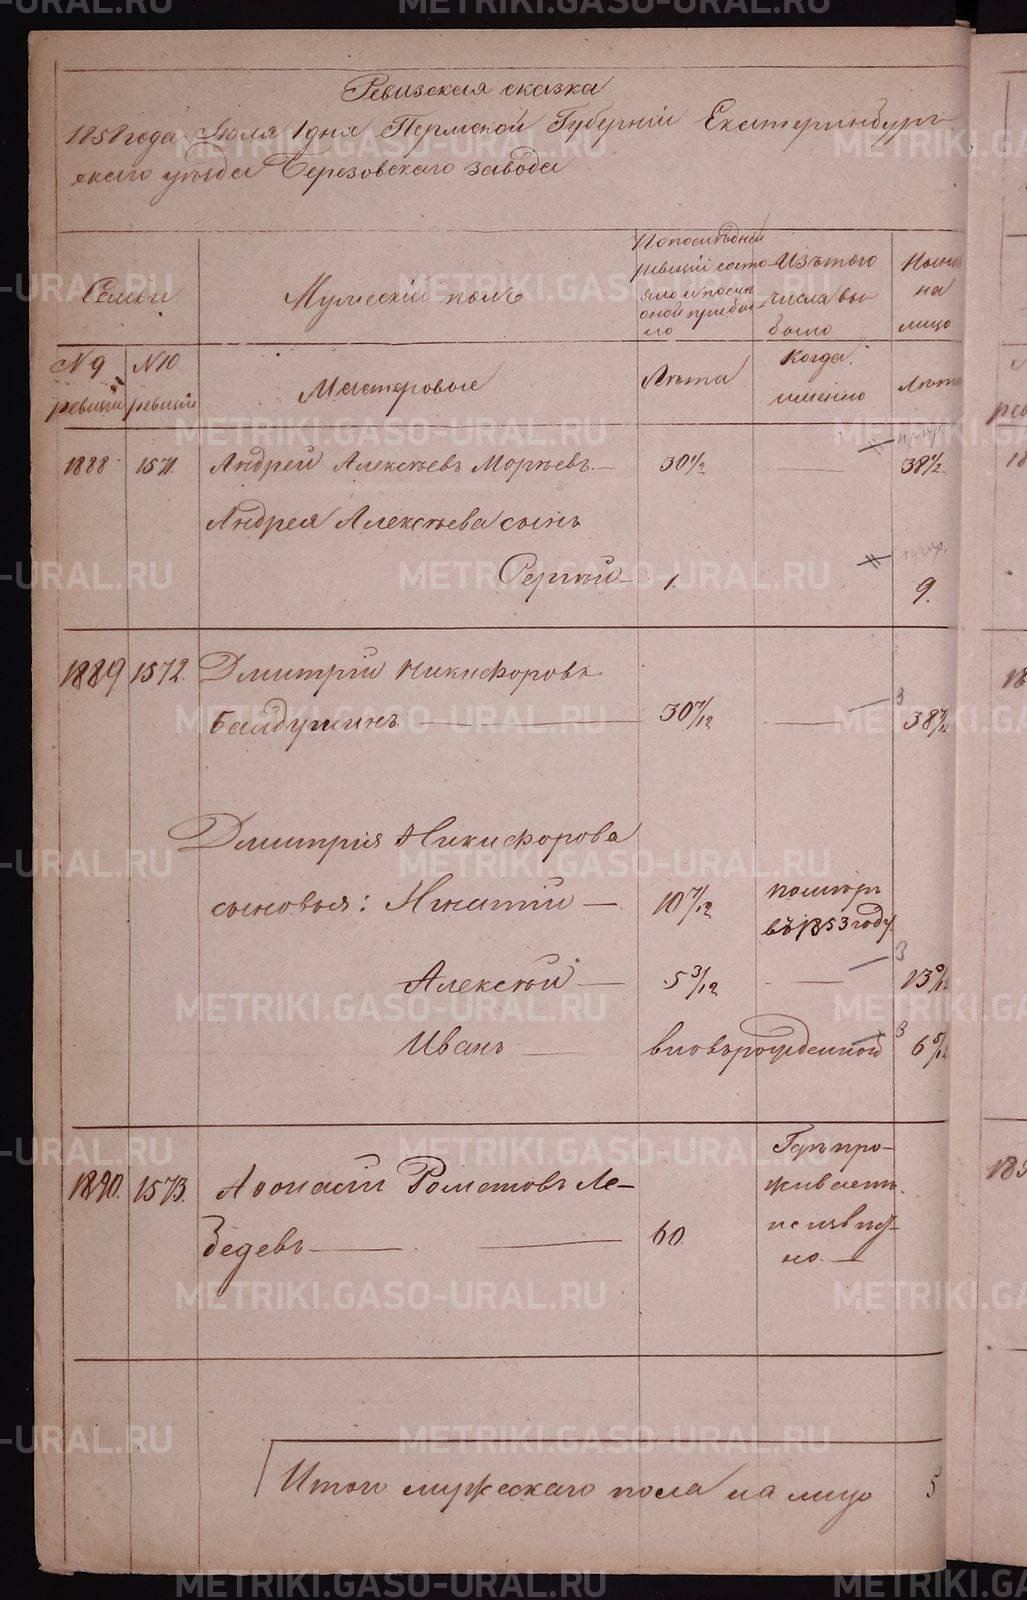 Ревизская сказка
1858 года Июля 1 дня Пермской Губерніи Екатеринбург-
скаго уѣзда Березовскаго завода
Семьи
Мужескій полъ
По послѣдней
ревизіи состо-
яло и послѣ
оной прибы-
ло
Изъ того
числа вы
было
Нынѣ
на
лицо
№ 9
ревизіи
№ 10
ревизіи
Мастеровые
Лѣта
Когда
именно
Лѣта
1888 1571. Андрей Алексѣевъ 30 1/2 38 1/2.
Андрея Алексѣева сынъ
Сергѣй 1. 9.
1889 1572. Дмитрій Никифоровъ
Балдушинъ 30 7/12 3 38 7/12
Дмитрія Никифорова
сыновья: Игнатій 10 7/12 померъ
въ 1853 году.
Алексѣй 5 3/12 3 13
Иванъ вновьрожденной 3 6 5/12
1890. 1573. Афонасій Ле-
бедевъ 60.
Гдѣ про-
живаетъ
неизвѣст-
но.
Итого мужескаго пола на лицо 5
METRIKI.GASO-URAL.RU